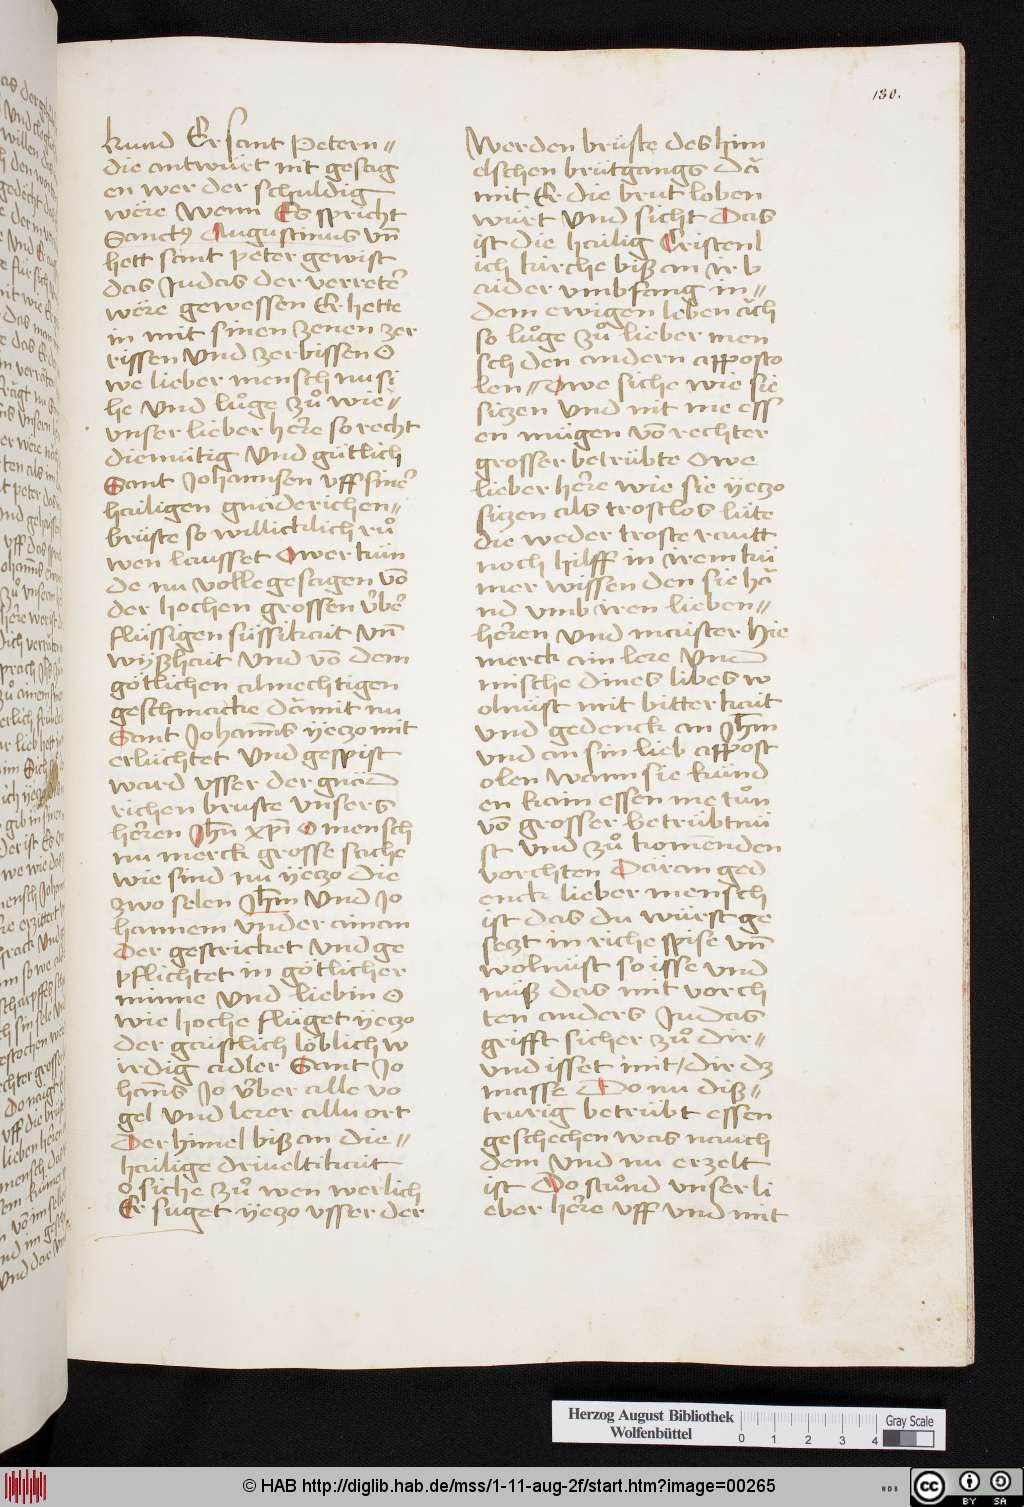 130.
kund Er sant Petern〃
die antwürt nit gesag
en wer der schuldig
wëre wenn Es spricht
Sanctꝰ Augustinus vn̄
hett sant peter gewist
das Judas der verreter̄
wëre gewessen Er hette
in mit sinen zenen zer
rissen vnd zerbissen O
we lieber mensch nu si
he vnd luͦge zuͦ wie〃
vnser lieber her̄e so recht
diemütig vnd gütlich
Sant Johannsen vff siner̄
hailigen gnäderichen〃
brüste so willicklich ruͦ
wen lausset O wer kün
de nu volle gesagen vō
der hochen grossen v̈ber̄
flüssigen süssikait vn̄
wyßhait vnd vō dem
götlichen almechtigen
geschmacke dämit nu
Sant Johanns yeczo mit
erlüchtet vnd gespist
ward vsser der gnäd
richen bruste vnsers
her̄en Jhū xp̄i O mensch
nu merck grosse sache
wie sind nu yeczo die
zwo selen Jhm̄ vnd Jo
hannem vnder ainan
der gestricket vnd ge
pflichtet in götlicher
minne vnd liebin O
wie hoche flüget yeczo
der gaistlich löblich w
irdig adler Sant Jo
hans Jo v̈ber alle vo
gel vnd lerer allu ort
Der himel biß an die〃
hailige driueltikait
o siche zuͦ wen werlich
Er suget yeczo vsser der
Werden brüste des him
elschen brütgangs dā
mit Er die brut loben
würt vnd sicht Das
ist die hailig Cristenl
ich kirche biß an ir b
aider vmbfang in〃
dem ewigen leben ach
so luͦge zuͦ lieber men
sch den andern apposto
len〃 Owe siche wie sie
siczen vnd nit me ess
en mügen vō rechter
grosser betrübte Owe
lieber her̄e wie sie yeczo
siczen als trostlos lüte
die weder troste rautt
noch hilff in irem kü
mer wissen den sie hā
nd vmb iren lieben〃
her̄en vnd maister Hie
merck ain lere vnd
mische dines libes w
olnüst mit bitterkait
vnd gedenck an Jhm̄
vnd an sin lieb appost
olen wann sie künd
en kain essen me tuͦn
vō grosser betrübtnü
st vnd zuͦ komenden
vorchten Däran ged
enck lieber mensch
ist das du würst ge
seczt in riche spise vn̄
wolnüst so isse vnd
nüß das mit vorch
ten anders Judas
grifft sicher zuͦ dir〃
vnd isset mit dir dz
masse Do nu diß〃
trurig betrübt essen
geschechen was nauch
dem vnd nu erzelt
ist Do stuͦnd vnser li
eber her̄e vff vnd mit
Herzog August Bibliothek
Wolfenbüttel
0 1 2 3 4
Gray Scale
© HAB http://diglib.hab.de/mss/1-11-aug-2f/start.htm?image=00265
WDB
CC BY SA